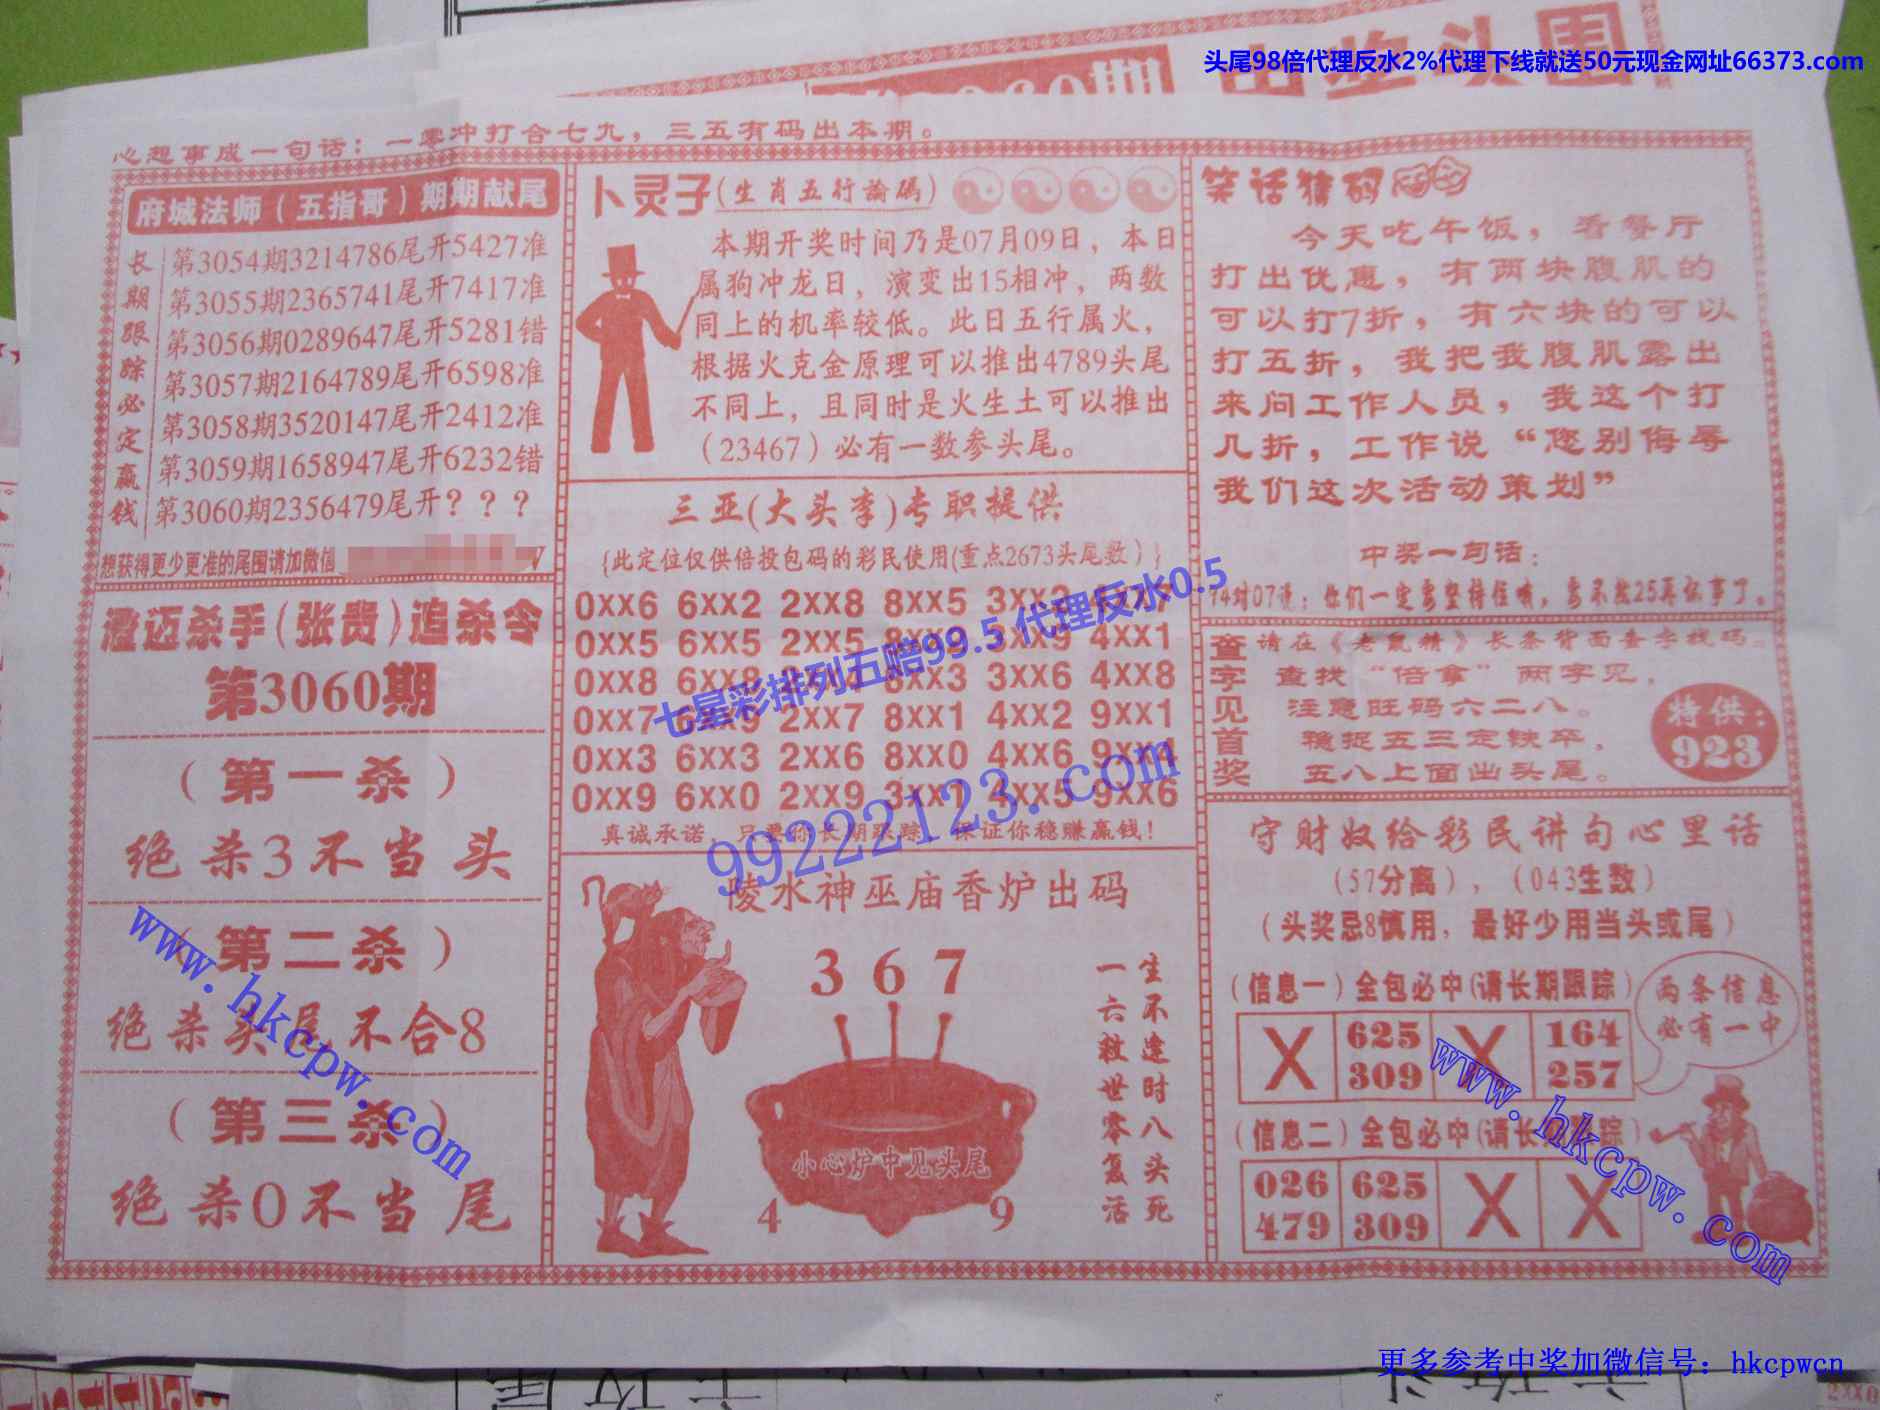 头尾98倍代理反水2%代理下线就送50元现金网址66373.com
出奖头围
心想事成一句话：一零冲打合七九，三五有码出本期。
府城法师（五指哥）期期献尾
长期跟踪必定赢钱
第3054期3214786尾开5427准
第3055期2365741尾开7417准
第3056期0289647尾开5281错
第3057期2164789尾开6598准
第3058期3520147尾开2412准
第3059期1658947尾开6232错
第3060期2356479尾开？？？
想获得更少更准的尾围请加微信
澄迈杀手(张贵)追杀令
第3060期
（第一杀）
绝杀3不当头
（第二杀）
绝杀头尾不合8
（第三杀）
绝杀0不当尾
卜灵子(生肖五行論碼)
本期开奖时间乃是07月09日，本日
属狗冲龙日，演变出15相冲，两数
同上的机率较低。此日五行属火，
根据火克金原理可以推出4789头尾
不同上，且同时是火生土可以推出
（23467）必有一数参头尾。
三亚(大头李)专职提供
{此定位仅供倍投包码的彩民使用(重点2673头尾数）}
0XX6 6XX2 2XX8 8XX5
0XX5 6XX5 2XX5 4XX1
0XX8 8XX3 3XX6 4XX8
0XX7 2XX7 8XX1 4XX2 9XX1
0XX3 6XX3 2XX6 8XX0 4XX6 9XX4
0XX9 6XX0 2XX9 3XX1 4XX5 9XX6
真诚承诺，只要你长期跟踪，保证你稳赚赢钱！
七星彩排列五赔99.5 代理反水0.5
99222123.com
陵水神巫庙香炉出码
367
生不逢时八头死
一六粒世零复活
小心炉中见头尾
4 9
笑话猜码
今天吃午饭，看餐厅
打出优惠，有两块腹肌的
可以打7折，有六块的可以
打五折，我把我腹肌露出
来问工作人员，我这个打
几折，工作说“您别侮辱
我们这次活动策划”
中奖一句话：
查字见首奖
请在《老鼠精》长条背面查字找码。
查找“倍拿”两字见，
注意旺码六二八。
稳捉五三定铁卒，
五八上面出头尾。
特供：
923
守财奴给彩民讲句心里话
（57分离），（043生数）
（头奖忌8慎用，最好少用当头或尾）
（信息一）全包必中(请长期跟踪）
两条信息
必有一中
X 625 X 164
309 257
（信息二）全包必中(请长期跟踪）
026 625 X X
479 309
www.hkcpw.com
www.hkcpw.com
更多参考中奖加微信号：hkcpwcn
2XX0